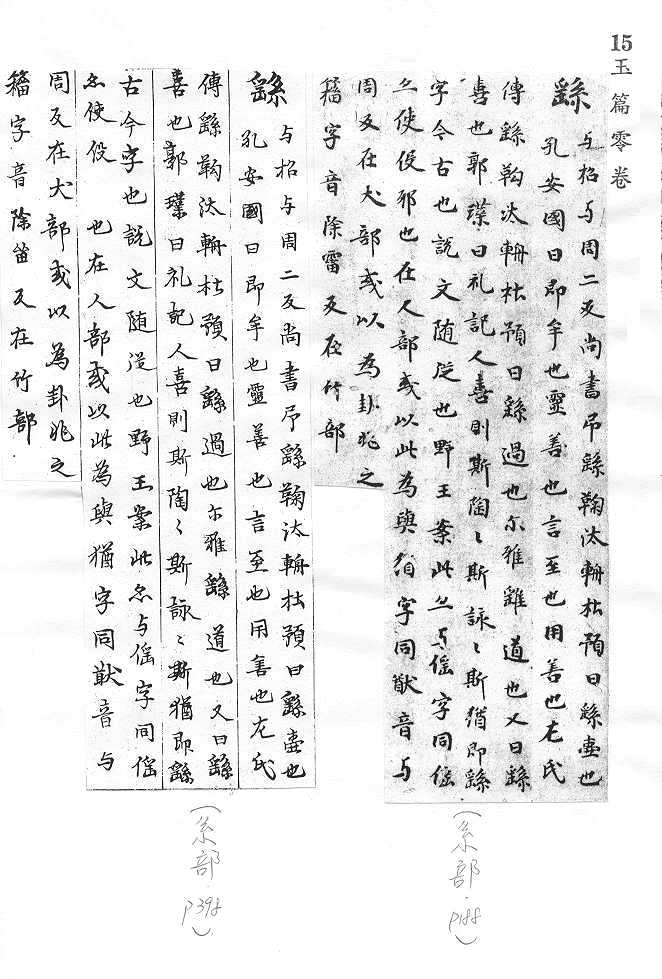 15 玉篇零卷
繇 与招与周二反尚書厥繇鞠汰輈杜預曰繇壷也
孔安國曰即牟也靈善也言至也用善也左氏
傳繇鞫汰輈杜預曰繇過也尓雅 道也又曰繇
喜也郭璞曰礼記人喜則斯陶〻斯詠〻斯猶即繇
字今古也說文随從也野王案此 与傜字同傜
 使役邪也在人部或以此為與 字同猷音与
周反在犬部或以為卦兆之
籕字音除雷反在竹部
(糸部 P188)
繇 与招与周二反尚書 繇鞠汰輈杜預曰繇壷也
孔安國曰即牟也靈善也言至也用善也左氏
傳繇鞫汰輈杜預曰繇過也尓雅繇道也又曰繇
喜也郭璞曰礼記人喜則斯陶〻斯詠〻斯猶即繇
古今字也說文随從也野王案此 与傜字同傜
 使役 也在人部或以此為與猶字同猷音与
周反在犬部或以為卦兆之
籕字音除留反在竹部
(糸部 P398)